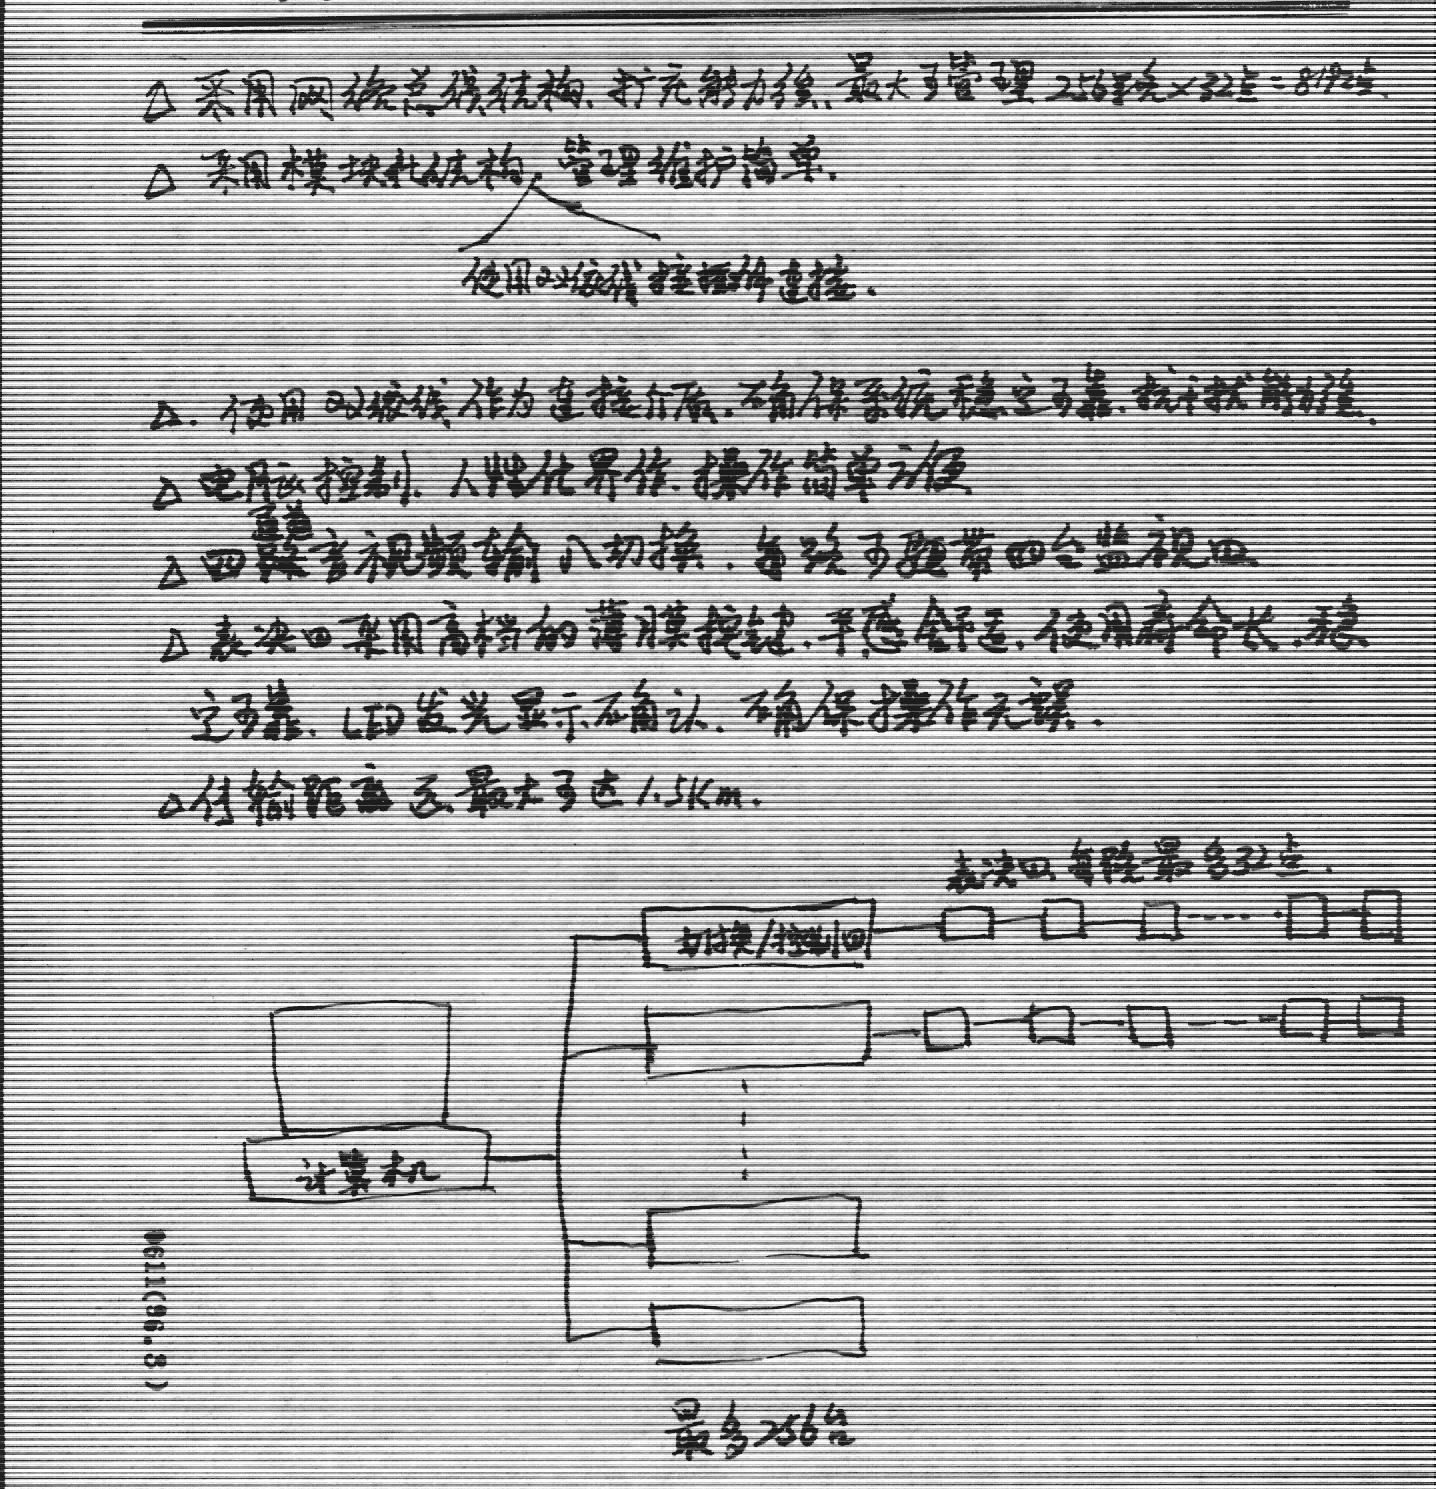 △ 采用网络总线结构、扩充能力强、最大可管理 256系统×32点=8192点.
△ 采用模块化结构、管理维护简单.
使用双绞线接插件连接.
△. 使用双绞线作为连接介质.确保系统稳定可靠.抗干扰能力强.
△ 电脑控制、人性化界作、操作简单方便
△ 四路音视频输入切换.每路可驱带四台监视四
△ 表决四采用高档的薄膜按键.手感舒适.使用寿命长.稳
定可靠.LED发光显示确认.确保操作无误.
△ 传输距离远.最大可达1.5Km.
表决四 每路最多32点.
切换/控制四
计算机
0611(96.3)
最多256台